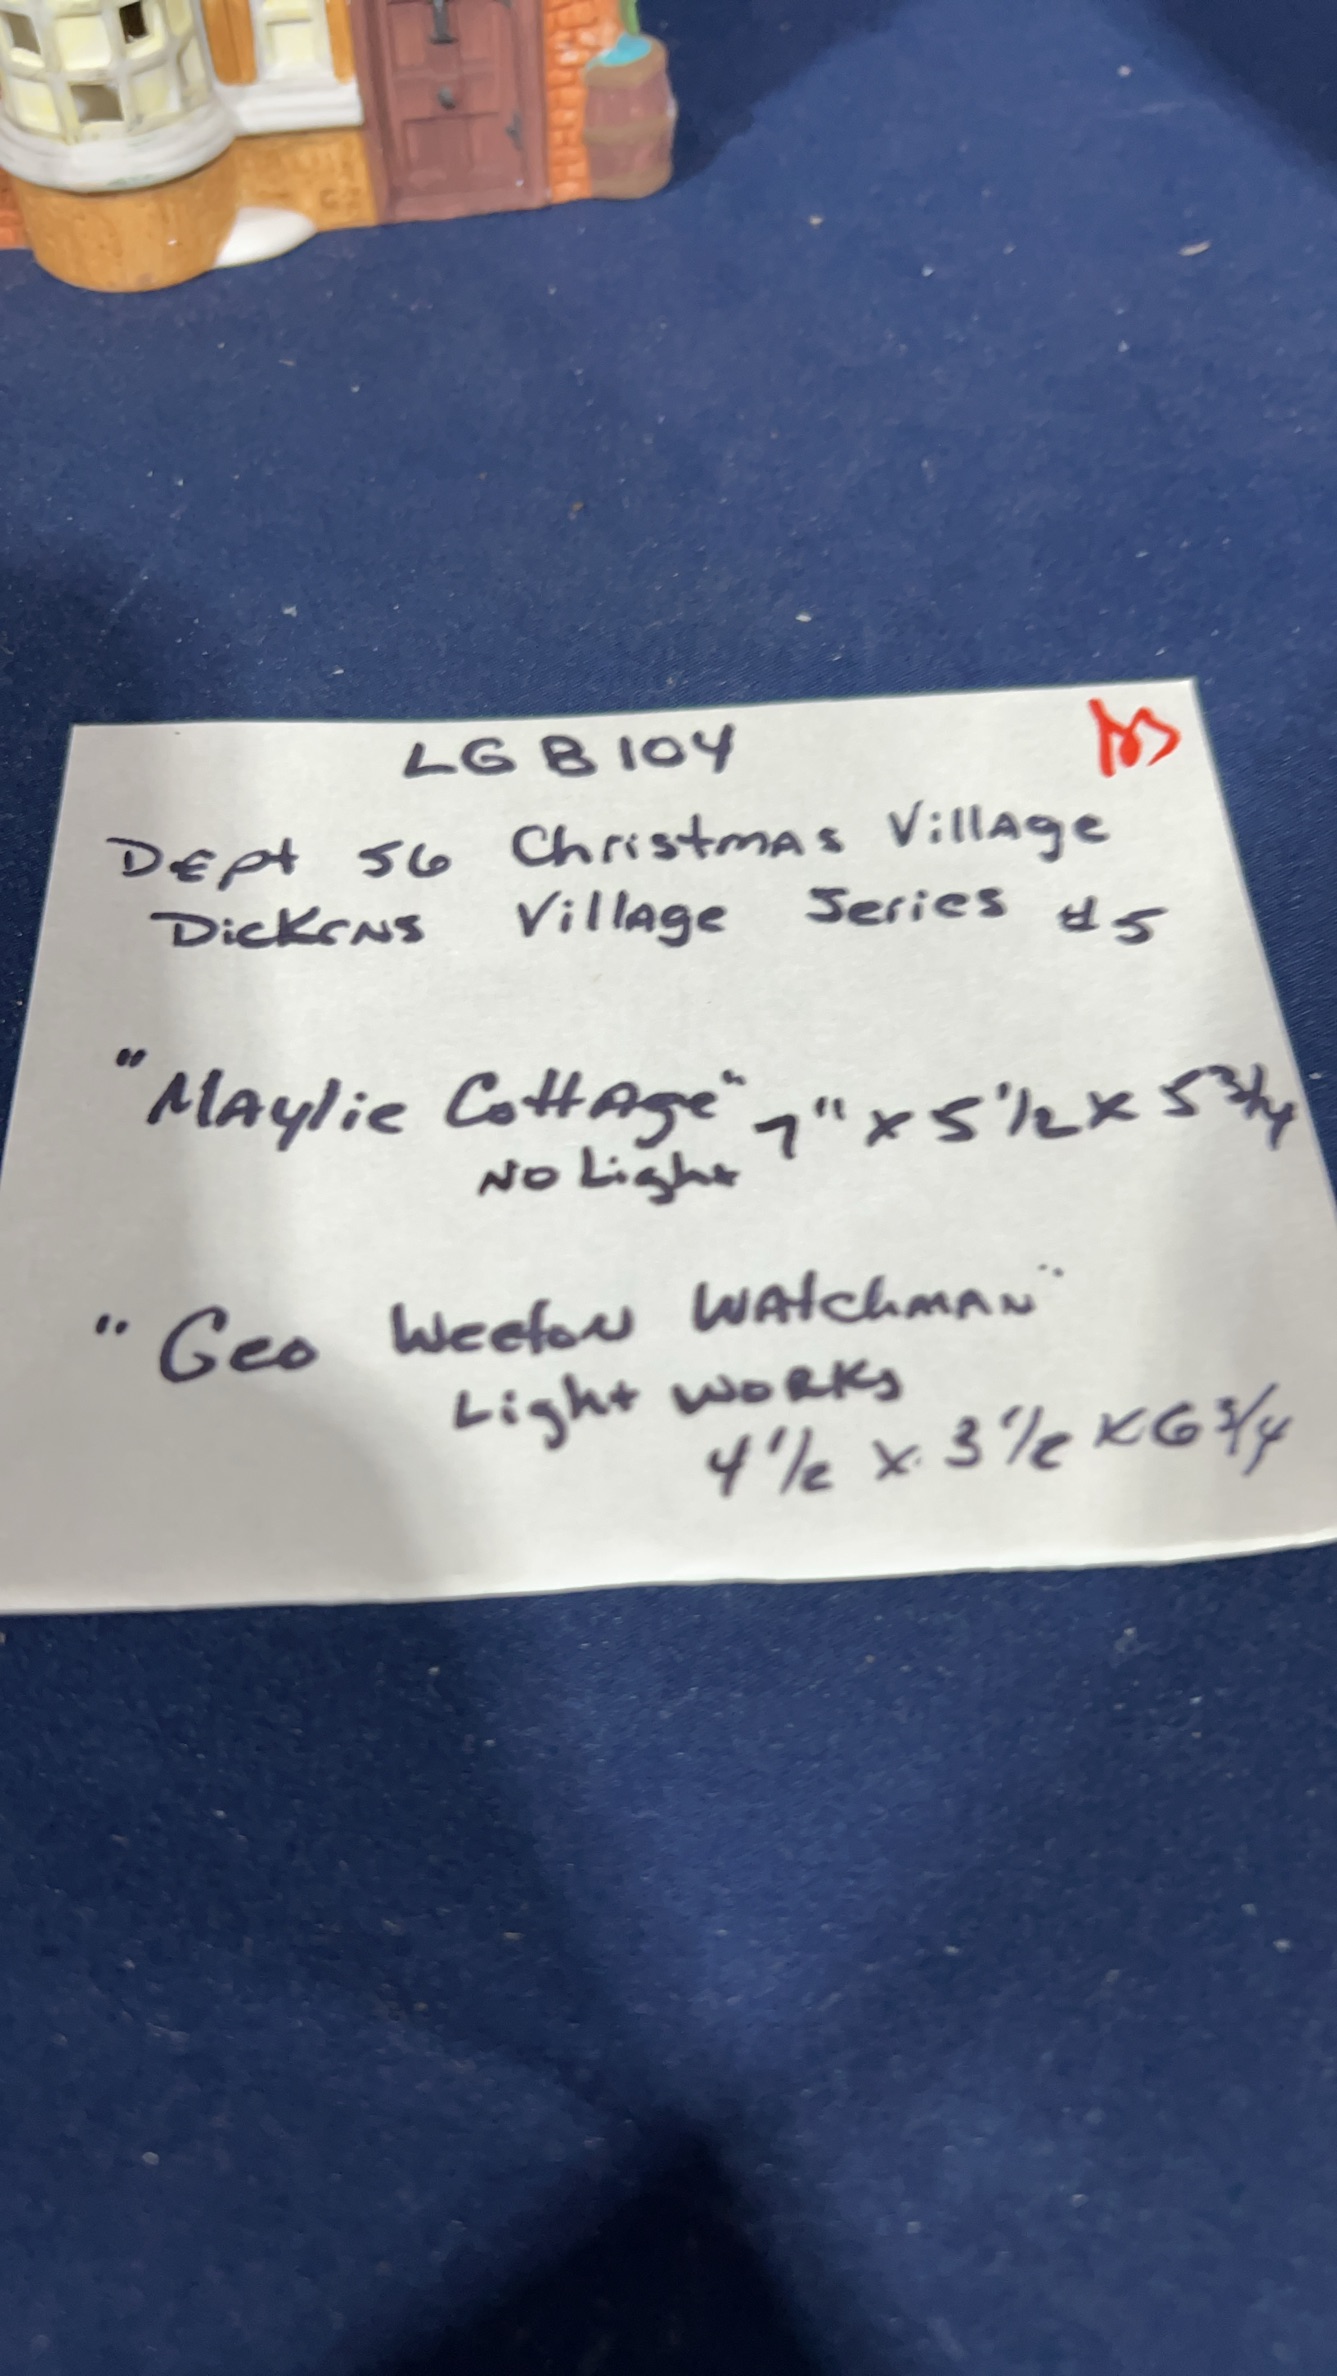 LGB104
Dept 56 Christmas Village
Dickens Village Series #5
"Maylie Cottage" 7" x 5 1/2 x 5 3/4
No Light
"Geo Weeton Watchman"
Light works
4 1/2 x 3 1/2 x 6 3/4